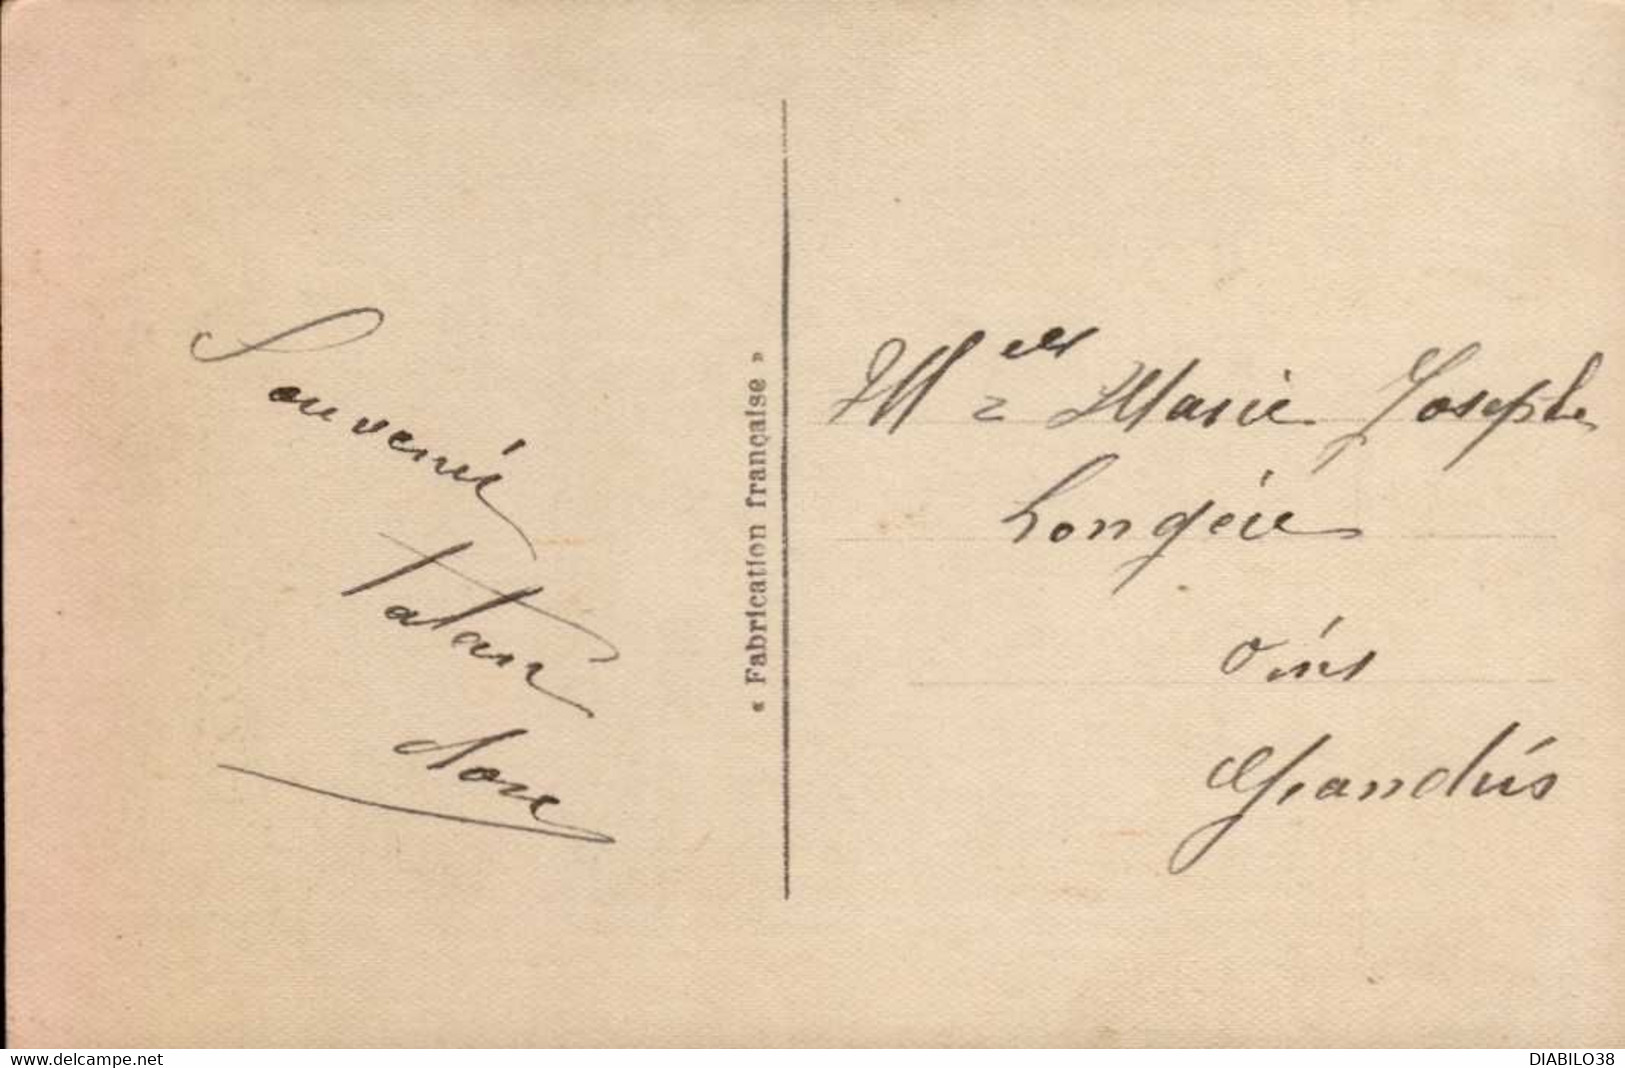 Souvenir
tatan
dore
« Fabrication française »
M elle Marie Joseph
Longère
Grandris
www.delcampe.net
DIABILO38